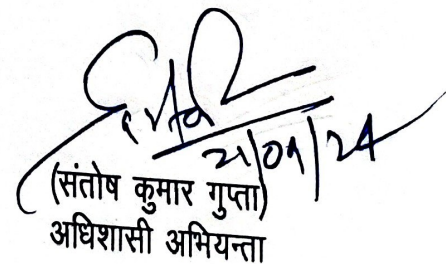 21/09/24
(संतोष कुमार गुप्ता)
अधिशासी अभियन्ता